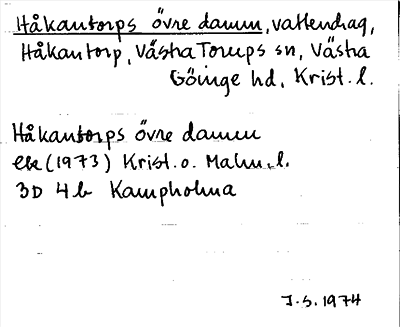 Håkantorps övre damm, vattendrag,
Håkantorp, Västra Torups sn, Västra
Göinge hd, Krist. l.
Håkantorps övre damm
ek (1973) Krist. o. Malm. l.
3D 4b Kampholma
J.S. 1974